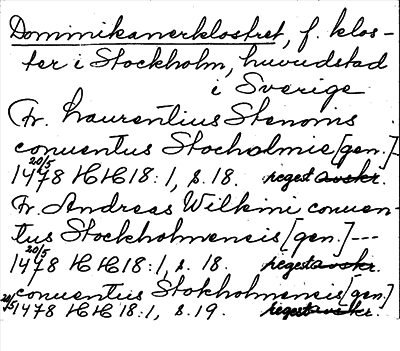 Dominikanerklostret, f. klos-
ter i Stockholm, huvudstad
i Sverige
Fr. Laurentius Stenonis
conventus Stocholmie [gen.]-
20/5
1478 HH 18:1, s. 18. regest avskr.
Fr. Andreas Wilkini conven-
tus Stockholmensis [gen.] ---
20/5
1478 HH 18:1, s. 18. regest avskr.
conventus Stokholmensis [gen.]
20/5 1478 HH 18:1, s. 19. regest avskr.